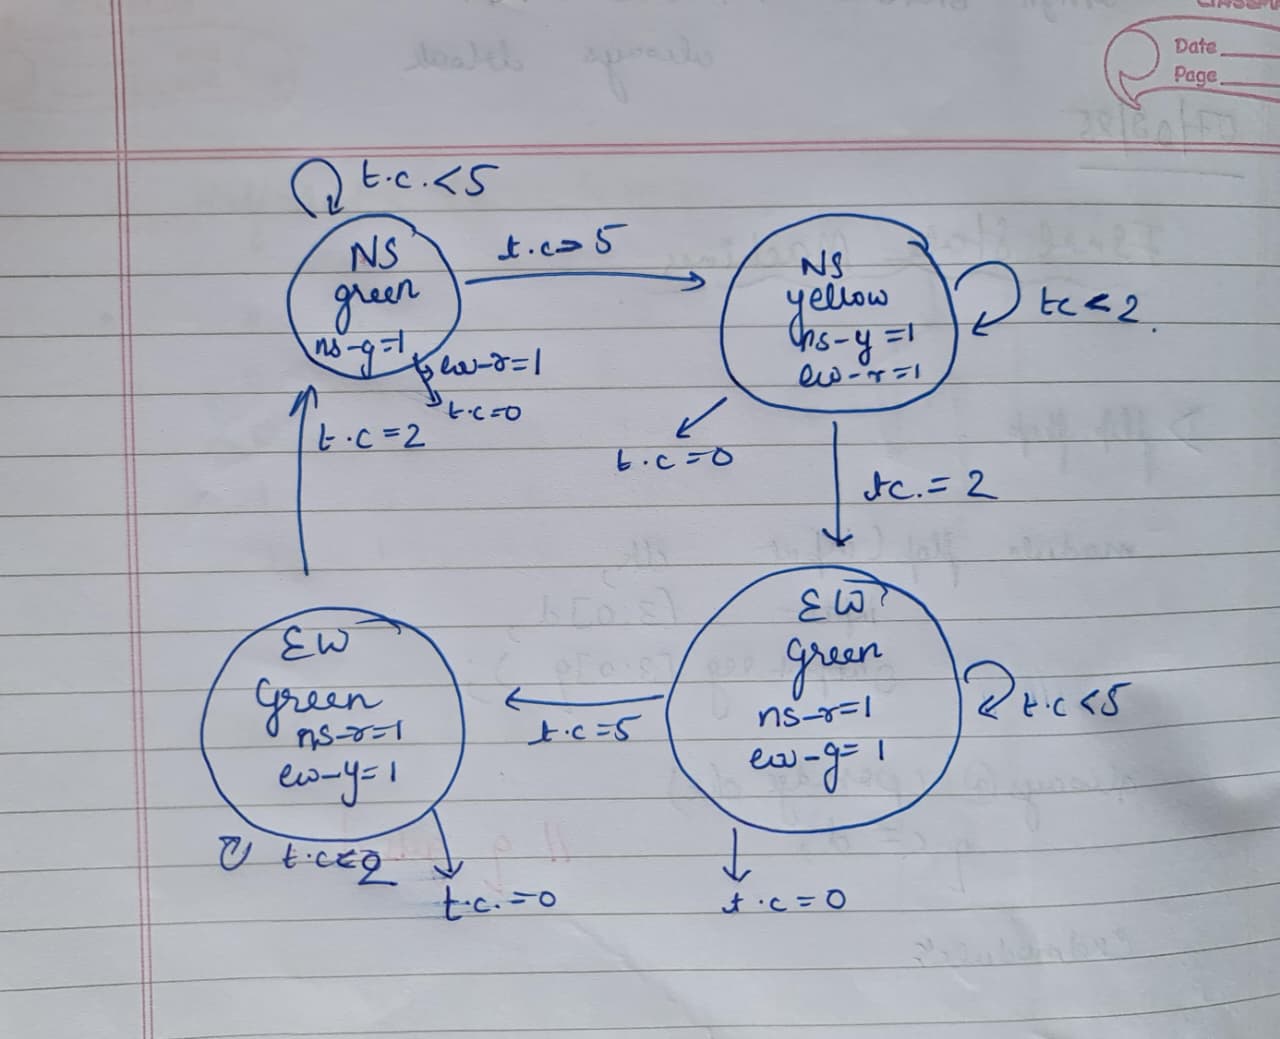 Date
Page
t.c. < 5
NS
green
ns-g=1
ew-r=1
t.c=0
t.c=5
NS
yellow
ns-y=1
ew-r=1
tc < 2
t.c=2
t.c=0
tc. = 2
EW
Green
ns-r=1
ew-y=1
t.c=5
EW
green
ns-r=1
ew-g=1
t.c<5
t.c<2
t.c.=0
t.c=0